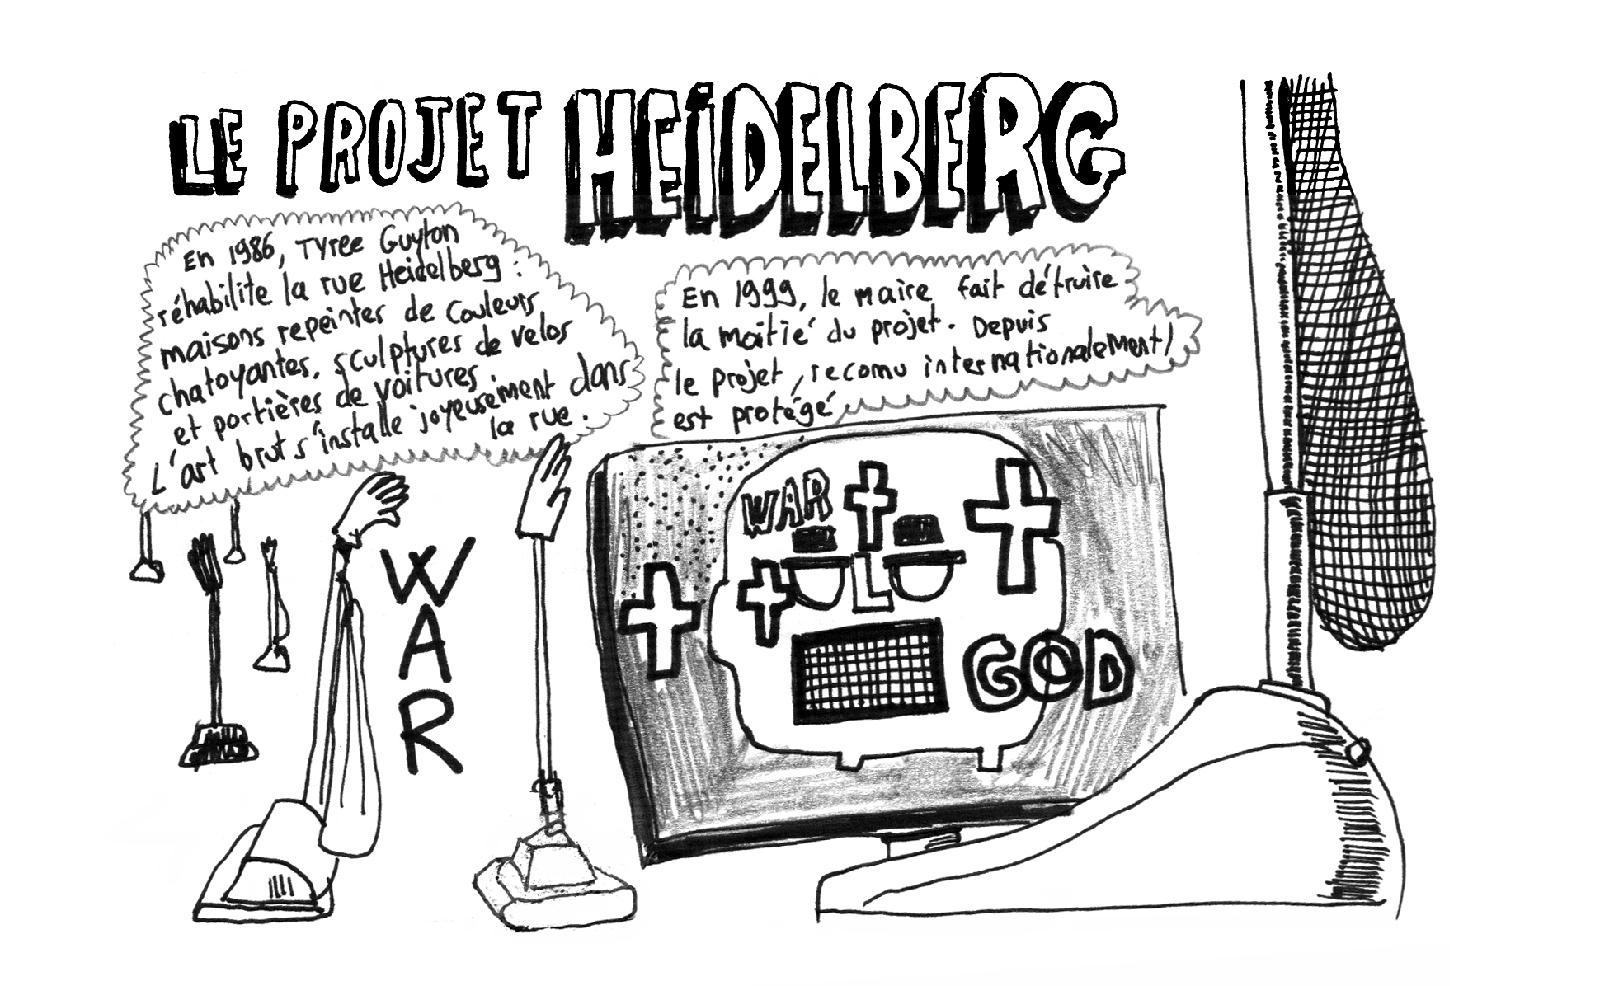 LE PROJET HEIDELBERG
En 1986, Tyree Guyton
réhabilite la rue Heidelberg :
maisons repeintes de couleurs
chatoyantes, sculptures de velos
et portières de voitures.
L'art brut s'installe joyeusement dans
la rue.
En 1999, le maire fait détruire
la moitié du projet. Depuis
le projet, reconnu internationalement,
est protégé
WAR
WAR
GOD